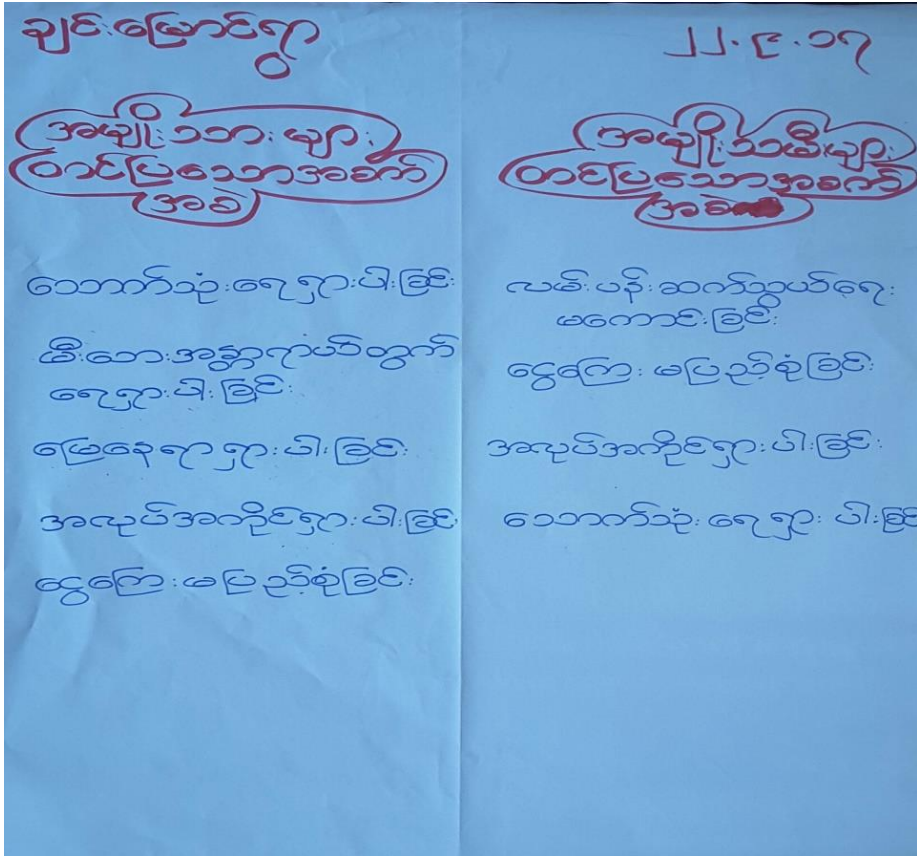 ချင်းမြောင်ရွာ
၂၂.၉.၁၇
အမျိုးသားများ
တင်ပြသောအစက်
အစ
သောက်သုံးရေရှားပါးခြင်း
မီးဘေးအန္တာရာယ်တွက်
ရေရှားပါးခြင်း
မြေနေရာရှားပါးခြင်း
အလုပ်အကိုင်ရှားပါးခြင်း
ငွေကြေးမပြည့်စုံခြင်း
အမျိုးသမီးများ
တင်ပြသောအစက်
အစ
လမ်းပန်းဆက်သွယ်ရေး
မကောင်းခြင်း
ငွေကြေးမပြည့်စုံခြင်း
အလုပ်အကိုင်ရှားပါးခြင်း
သောက်သုံးရေရှားပါးခြင်